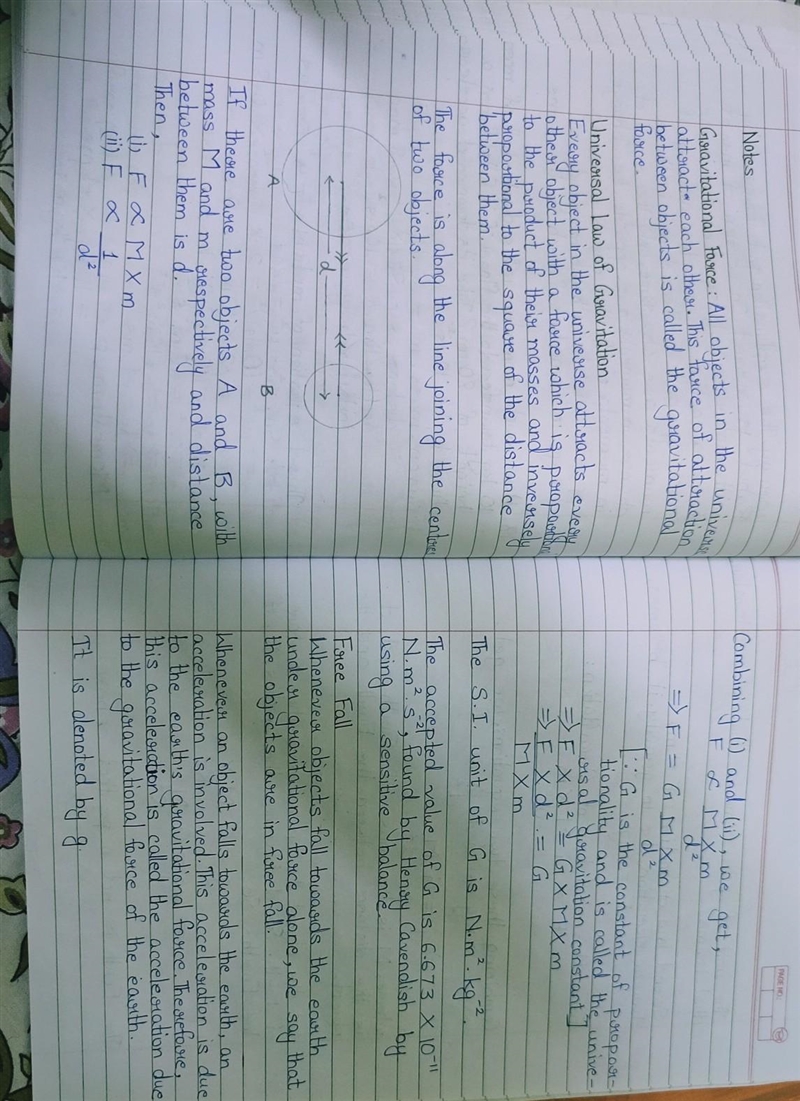 Notes
Gravitational Force: All objects in the universe
attract each other. This force of attraction
between objects is called the gravitational
force.
Universal Law of Gravitation
Every object in the universe attracts every
other object with a force which is proportional
to the product of their masses and inversely
proportional to the square of the distance
between them.
The force is along the line joining the centres
of two objects.
d
A
B
If there are two objects A and B, with
mass M and m respectively and distance
between them is d.
Then,
(i) F ∝ M × m
(ii) F ∝ 1
d²
PAGE NO.
Combining (i) and (ii), we get,
F ∝ M × m
d²
⇒ F = G M × m
d²
[∵ G is the constant of propor-
tionality and is called the unive-
rsal gravitation constant]
⇒ F × d² = G × M × m
⇒ F × d² = G
M × m
The S.I. unit of G is N.m².kg⁻².
The accepted value of G is 6.673 × 10⁻¹¹
N.m².s⁻², found by Henry Cavendish by
using a sensitive balance.
Free Fall
Whenever objects fall towards the earth
under gravitational force alone, we say that
the objects are in free fall.
Whenever an object falls towards the earth, an
acceleration is involved. This acceleration is due
to the earth's gravitational force. Therefore,
this acceleration is called the acceleration due
to the gravitational force of the earth.
It is denoted by g.